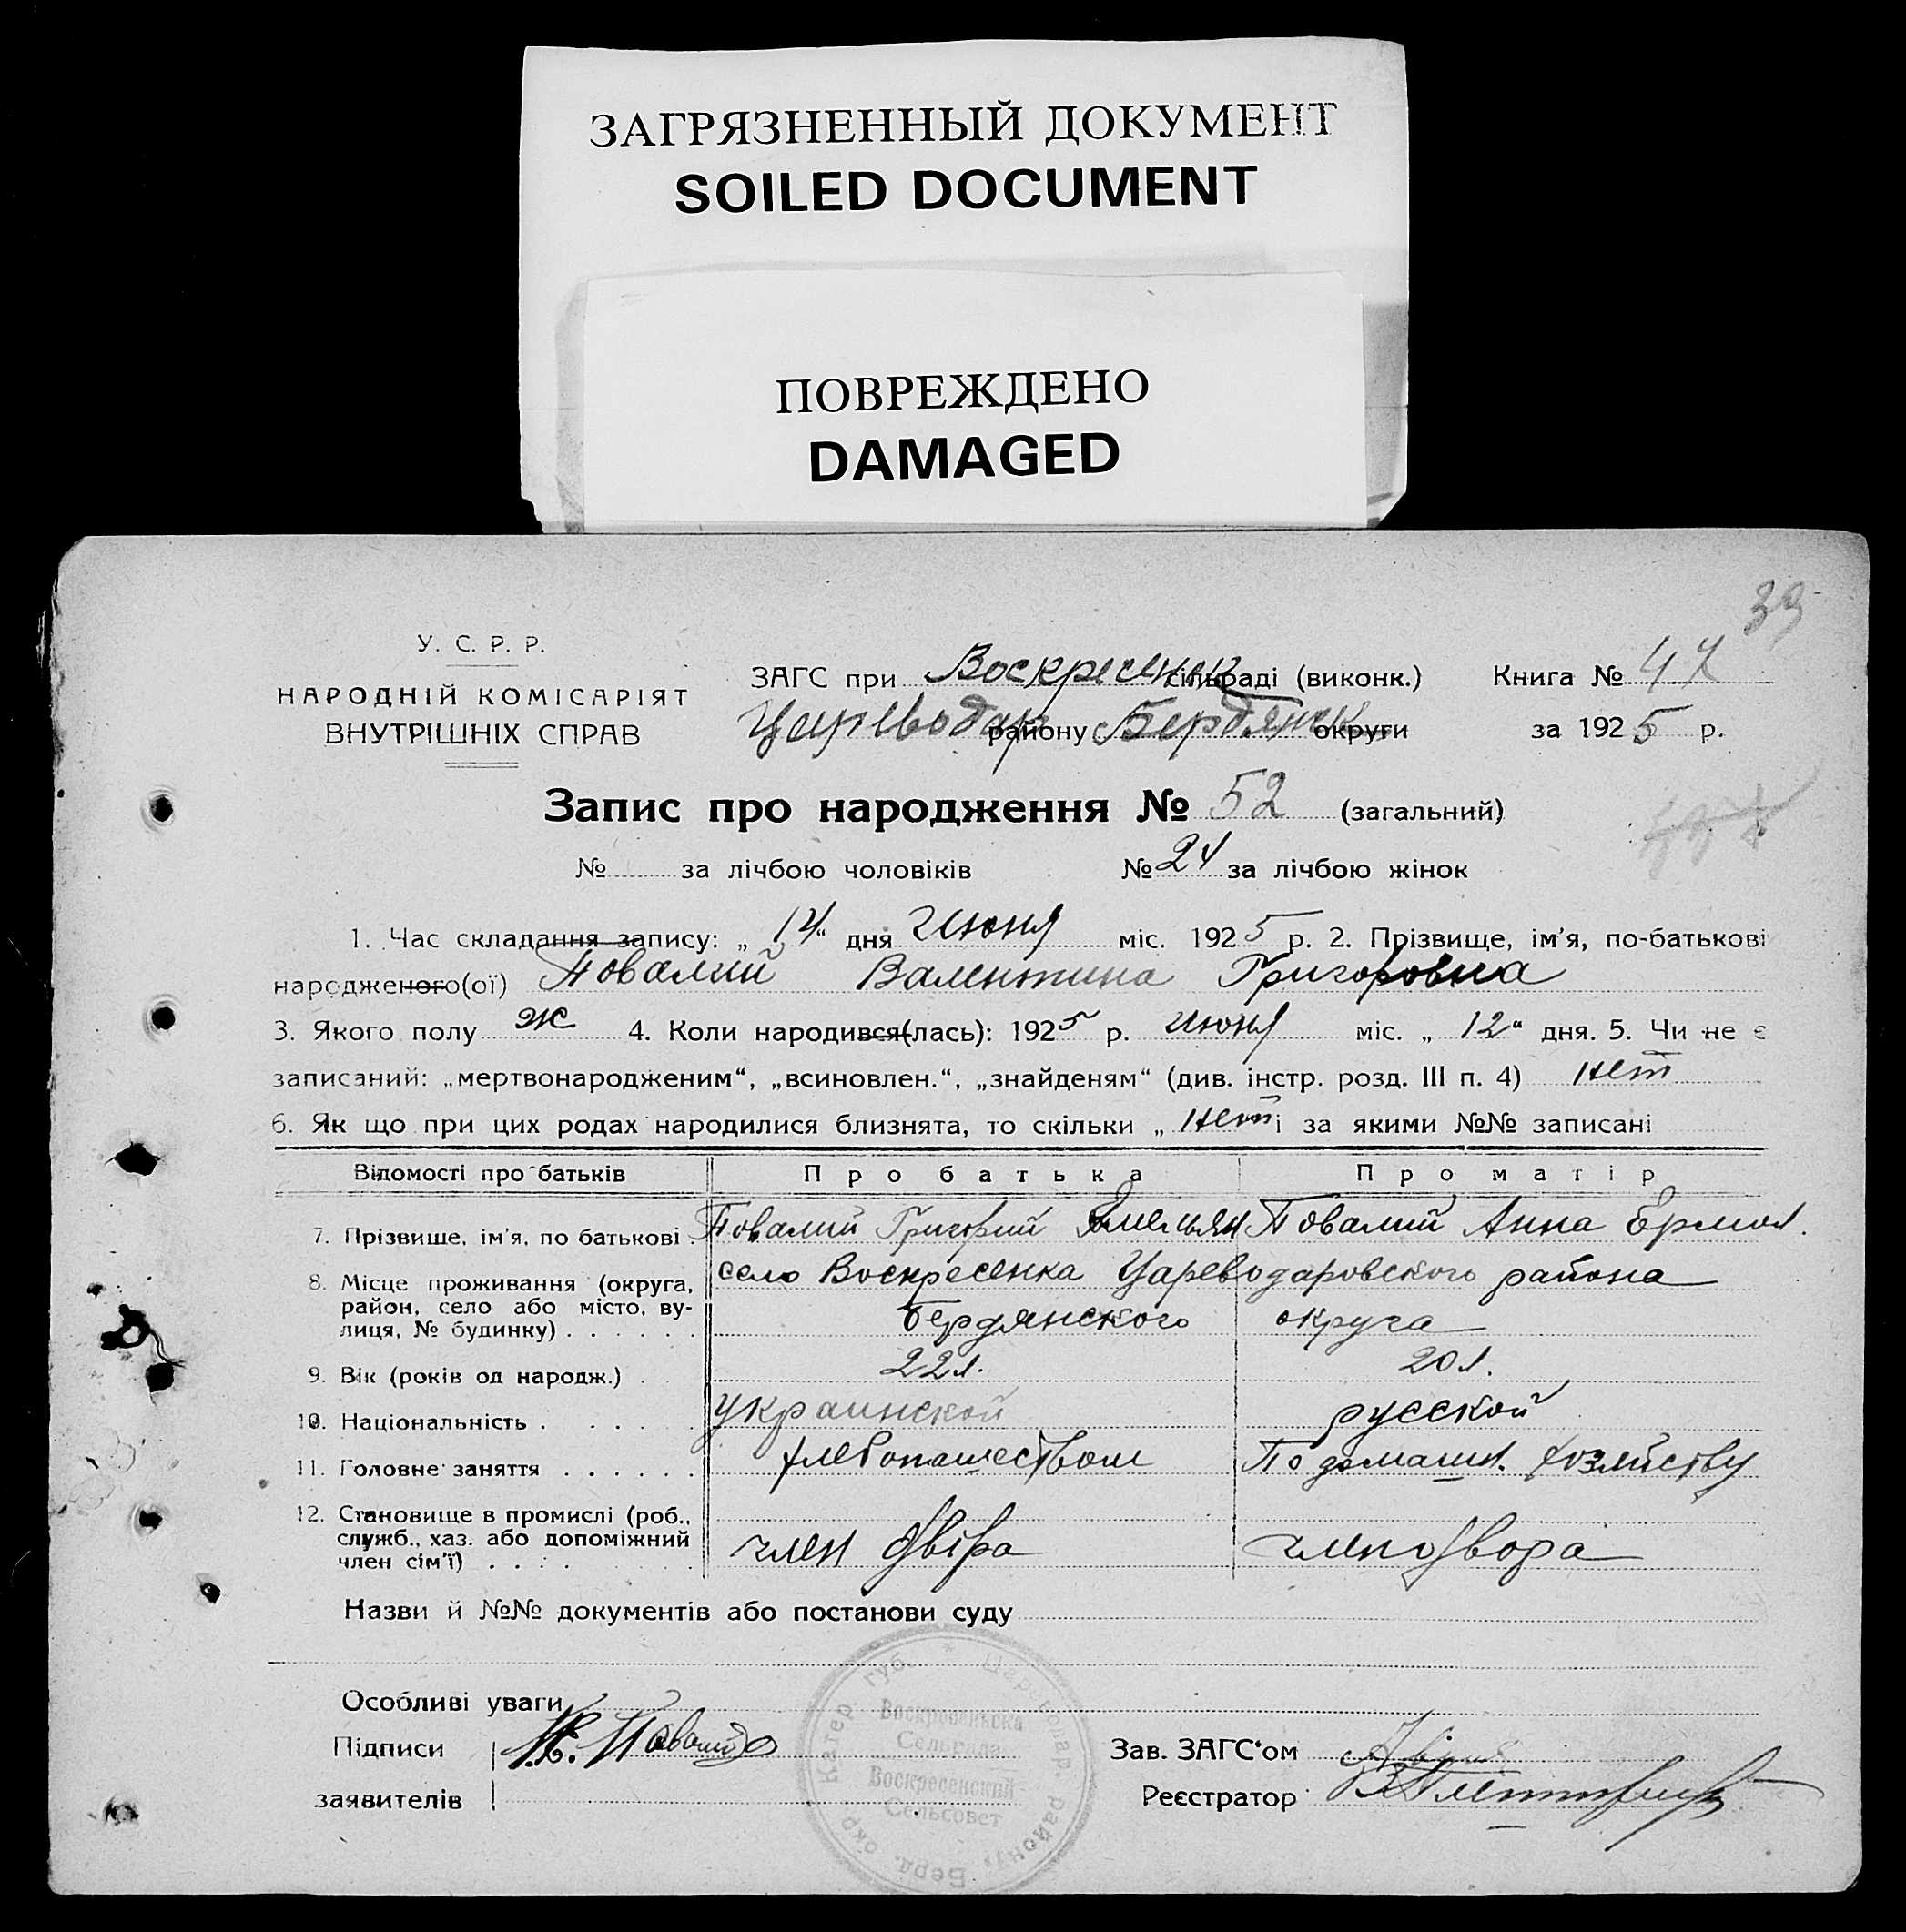 ЗАГРЯЗНЕННЫЙ ДОКУМЕНТ
SOILED DOCUMENT
ПОВРЕЖДЕНО
DAMAGED
39
У. С. Р. Р.
НАРОДНІЙ КОМІСАРІЯТ
ВНУТРІШНІХ СПРАВ
ЗАГС при Воскресенск сільраді (виконк.) Книга № 47
Цареводар району Бердянск округи за 1925 р.
Запис про народження № 52 (загальний)
№ за лічбою чоловіків № 24 за лічбою жінок
1. Час складання запису: „ 14 “ дня Июня міс. 1925 р. 2. Прізвище, ім'я, по-батькові
народженого(ої) Повалий Валентина Григоровна
3. Якого полу ж 4. Коли народився(лась): 1925 р. июня міс. „ 12 “ дня. 5. Чи не є
записаний: „мертвонародженим“, „всиновлен.“, „знайденям“ (див. інстр. розд. III п. 4) нет
6. Як що при цих родах народилися близнята, то скільки „ нет і за якими №№ записані
Відомості про батьків Про батька Про матір
7. Прізвище, ім'я, по батькові . Повалий Григорий Амельян Повалий Анна Ермол.
8. Місце проживання (округа, район, село або місто, вулиця, № будинку) . . . . . . село Воскресенка Цареводаровского района
Бердянского округа
9. Вік (років од народж.) . 22 л. 20 л.
10. Національність . . . . . украинской русской
11. Головне заняття . . . . . . хлебопашеством По домашн. хозяйству
12. Становище в промислі (роб., служб., хаз. або допоміжний член сім'ї) . . . . член двіра член двора
Назви й №№ документів або постанови суду
Особливі уваги
Підписи
Зав. ЗАГС'ом
заявителів
Реєстратор
Катер. губ. * Цареводар. району, Берд. окр.
Воскресеньска
Сельрада
Воскресенский
Сельсовет